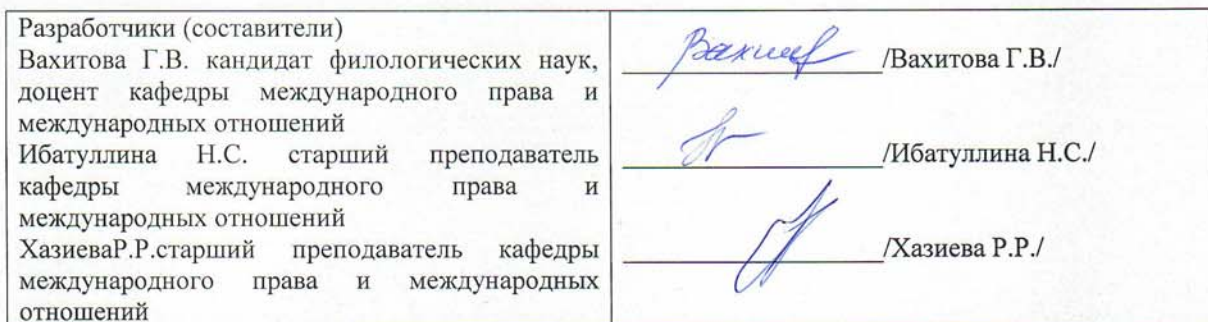 Разработчики (составители)
Вахитова Г.В. кандидат филологических наук,
доцент кафедры международного права и
международных отношений
Ибатуллина Н.С. старший преподаватель
кафедры международного права и
международных отношений
ХазиеваР.Р.старший преподаватель кафедры
международного права и международных
отношений
/Вахитова Г.В./
/Ибатуллина Н.С./
/Хазиева Р.Р./